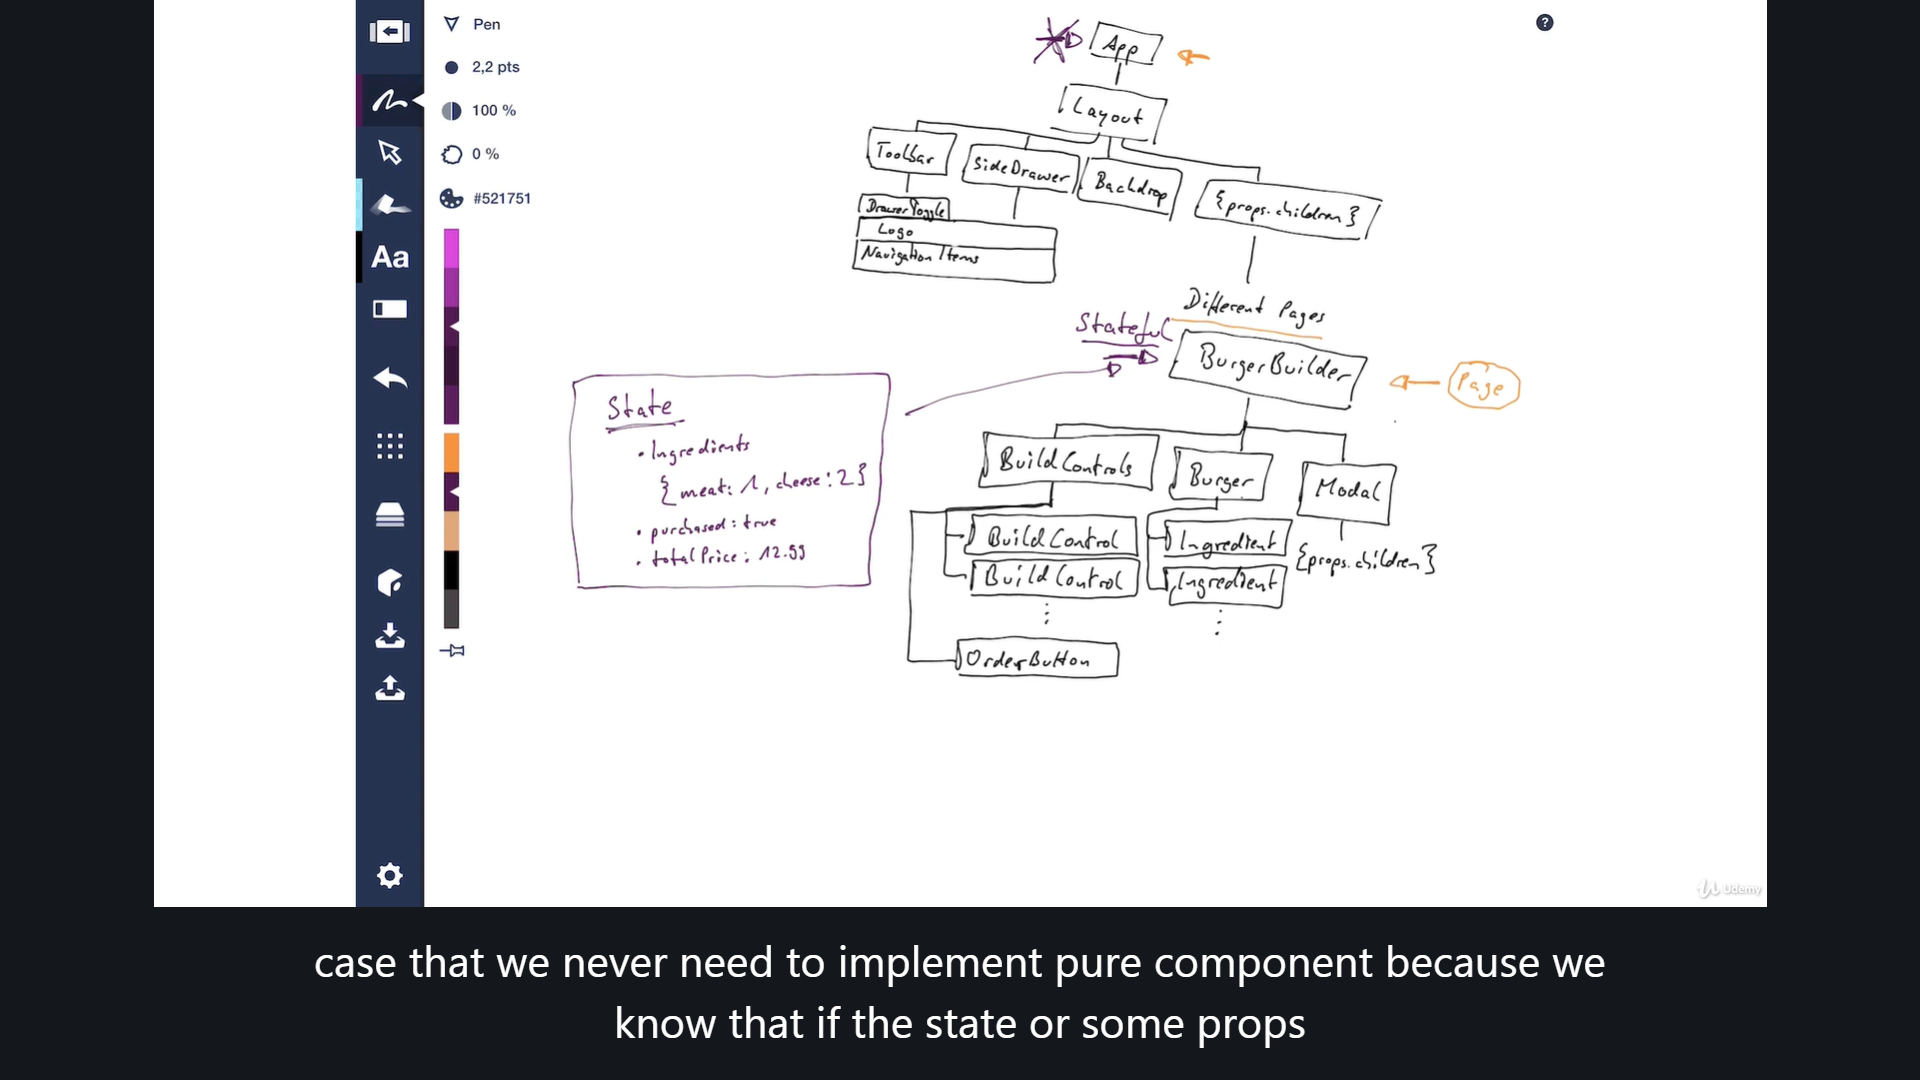 Pen
2,2 pts
100 %
0 %
#521751
Aa
?
App
Layout
Toolbar
SideDrawer
Backdrop
{props.children}
DrawerToggle
Logo
Navigation Items
Different Pages
Stateful
BurgerBuilder
Page
State
• Ingredients
{meat: 1, cheese: 2}
• purchased: true
• totalPrice: 12.99
BuildControls
Burger
Modal
BuildControl
Ingredient
{props.children}
BuildControl
Ingredient
OrderButton
Udemy
case that we never need to implement pure component because we
know that if the state or some props